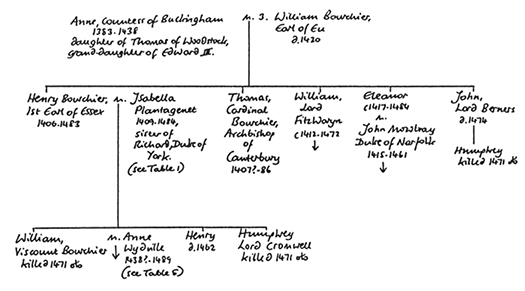 Anne, Countess of Buckingham m. 3. William Bourchier,
1383-1438 Earl of Eu
daughter of Thomas of Woodstock, d.1420
grand-daughter of Edward III.
Henry Bourchier, m. Isabella
1st Earl of Essex Plantagenet
1406-1483 1409-1484,
sister of
Richard, Duke of
York.
(see Table 1)
Thomas,
Cardinal
Bourchier,
Archbishop
of
Canterbury
1407?-86
William,
Lord
FitzWaryn
c1412-1472
↓
Eleanor
c1417-1484
m.
John Mowbray
Duke of Norfolk
1415-1461
↓
John,
Lord Berners
d.1474
Humphrey
killed 1471
William, m. Anne
Viscount Bourchier Wydville
killed 1471 1438?-1489
(see Table 5)
↓
Henry
d.1462
Humphrey
Lord Cromwell
killed 1471